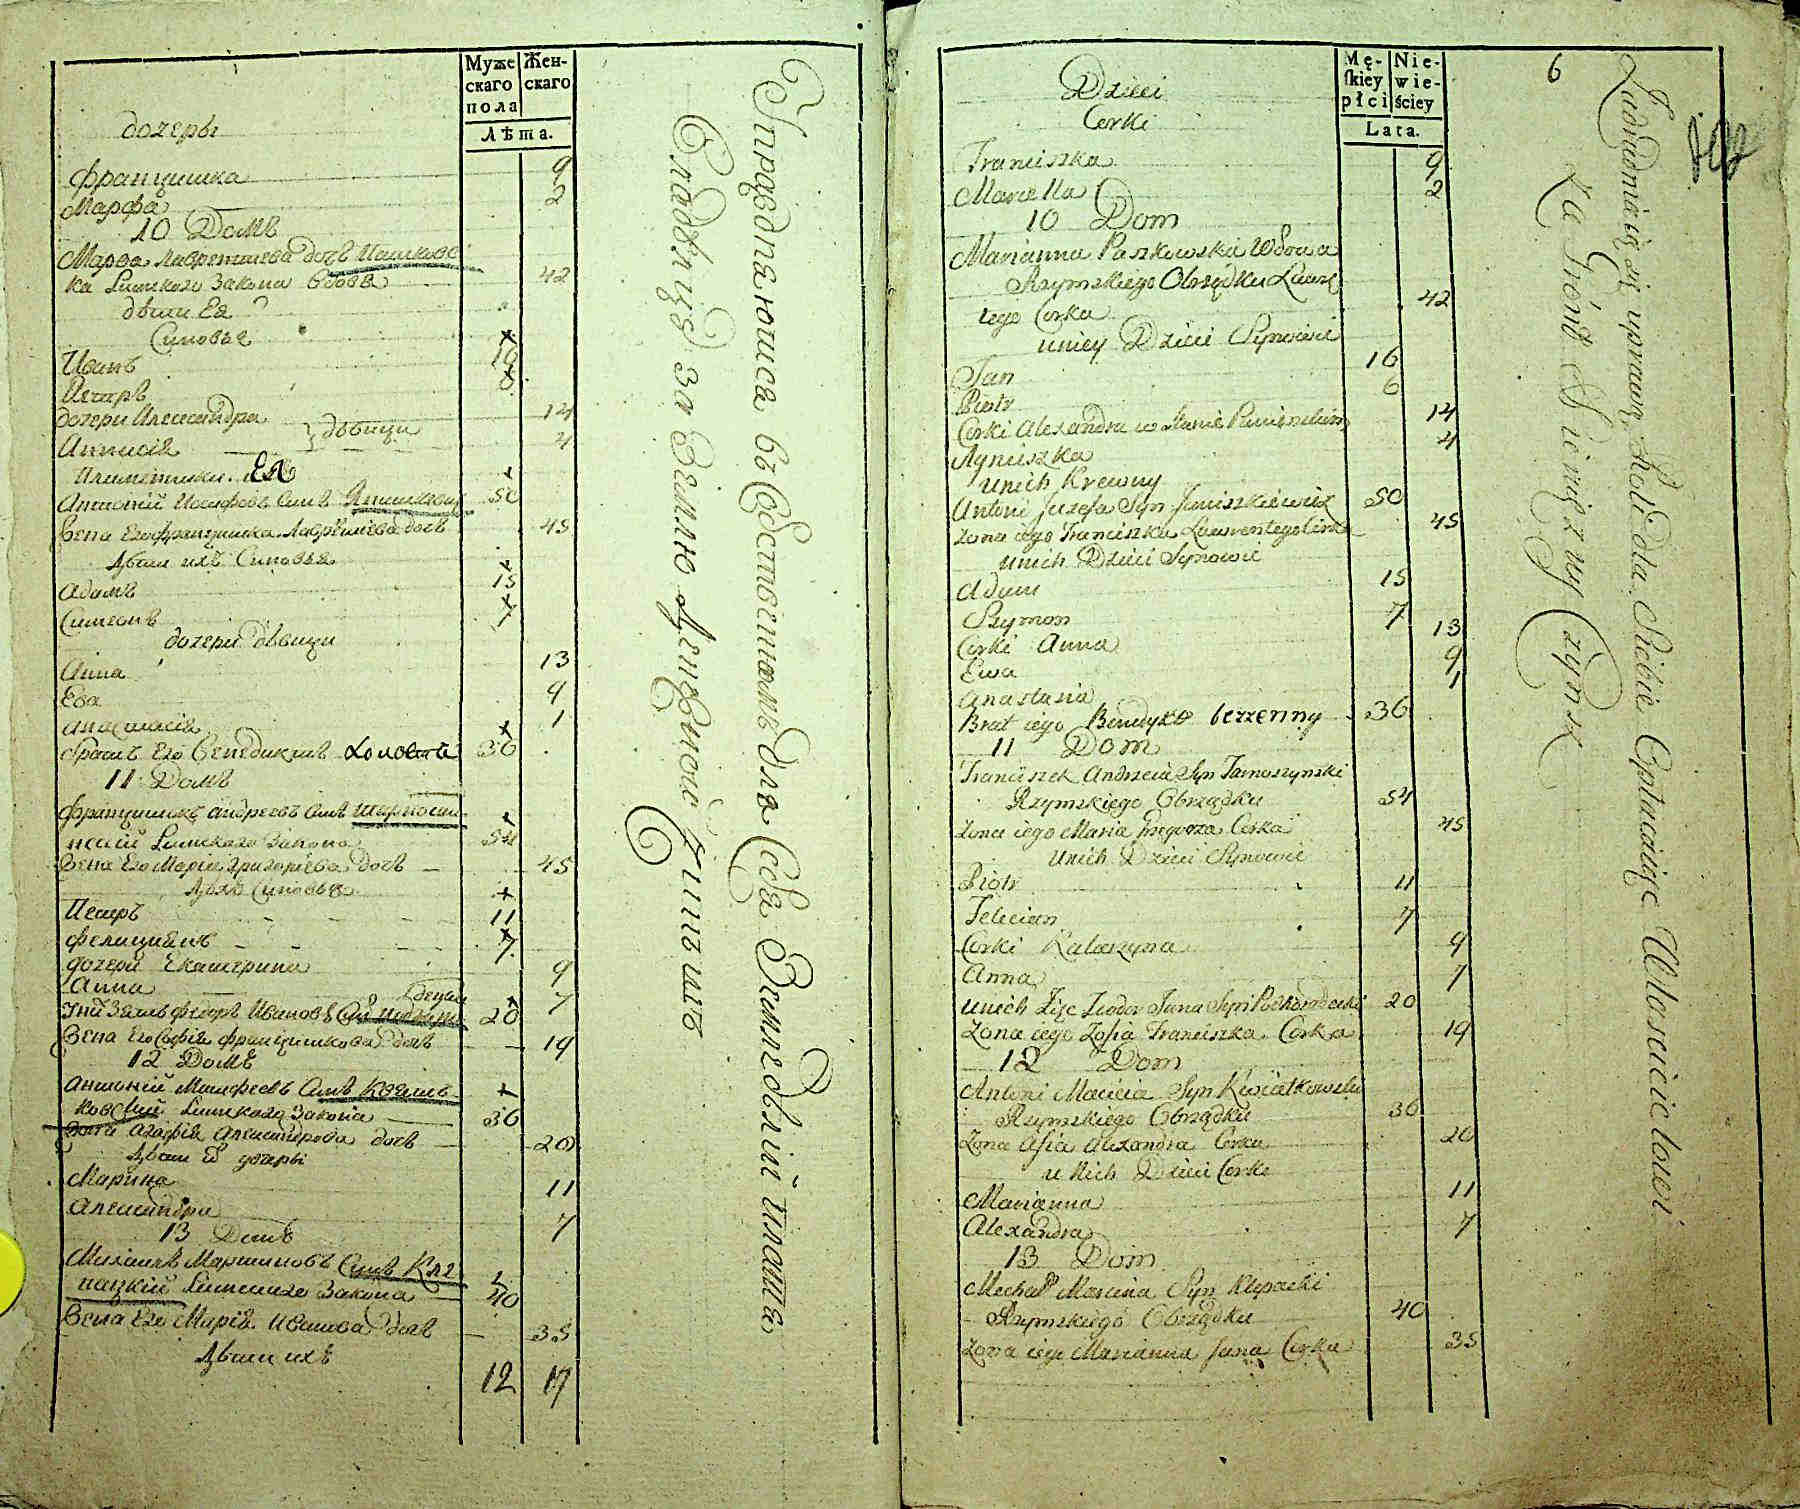 Муже
скаго
пола
Жен-
скаго
Лѣта.
дочеры
Францишка 9
Марфа 2
10 Домъ
Марѳа Лаврентиева дочь
ка Римскаго Закона вдова 42
дѣти Ея
Синовья
Иванъ 16
Петръ 6
дочери Александра 14
дѣвици
Аннисія 4
Племенники Ея
Антоній Иосифовъ Сынъ 50
Жена Его Францишка Лаврентиева дочь 45
Дѣти ихъ Синовья
Адамъ 15
Симеонъ 7
дочери дѣвици
Анна 13
Ева 9
Анастасія 1
братъ Его Бенедиктъ холостъ 36
11 Домъ
Францишкъ Андреевъ Сынъ
Римскаго Закона 54
Жена Его Марія Григорiева дочь 45
Синовья
Петръ 11
Фелиціянъ 7
дочери Екатерина 9
Анна 7
Зять Федоръ Ивановъ 20
Жена Его Софія Францишкова дочь 19
12 Домъ
Антоній Матфеевъ Сынъ Квятъ-
ковскій Римскаго Закона 36
Жена Агафія Александрова дочь 20
Дѣти дочеры
Марина 11
Александра 7
13 Домъ
Михаилъ Мартиновъ Сынъ Кле
пацкій Римскаго Закона 40
Жена Его Марія Иванова дочь 35
Дѣти ихъ
12 17
Управдняютися въ
для Себя Земледѣлій платя
Владѣлцу за Землю Денежной чиншъ
Mę-
skiey
płci
Nie-
wie-
ściey
Lata.
6
Dzieci
Corki
Franciszka 9
Maryella 2
10 Dom
Marianna Paszkowska Wdowa
Rzymskiego Obrządku Lawręt
tego Corka 42
u niey Dzieci Synowie
Jan 16
Piotr 6
Corki Alexandra w Stanie Panieńskim 14
Agnieszka 4
u nich Krewny
Antoni Jozefa Syn Januszkiewicz 50
Zona iego Franciszka Lawrentego Corka 45
u nich Dzieci Synowie
Adam 15
Szymon 7
Corki Anna 13
Ewa 9
Anastasia 1
Brat iego Benedykt bezzenny 36
11 Dom
Franciszek Andrzeia Syn Jamoszynski
Rzymskiego Obrządku 54
Zona iego Maria Grzegorza Corka 45
U nich Dzieci Synowie
Piotr 11
Felician 7
Corki Katarzyna 9
Anna 7
u nich Zięć Teodor Jana Syn 20
Zona iego Zofia Franciszka Corka 19
12 Dom
Antoni Macieia Syn Kwiatkowski
Rzymskiego Obrządku 36
Zona Alexandra Corka 20
u Nich Dzieci Corki
Marianna 11
Alexandra 7
13 Dom
Michał Marcina Syn Klepacki
Rzymskiego Obrządku 40
Zona iego Marianna Jana Corka 35
Zatrudniaią się uprawą Roli dla Siebie Opłacaiąc Włascicielowi
za Grónt Pieniężny Czynsz